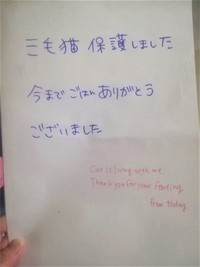 三毛猫 保護しました
今まで ごはん ありがとう
ございました
Cat is living with me.
Thank you for your feeding
from today